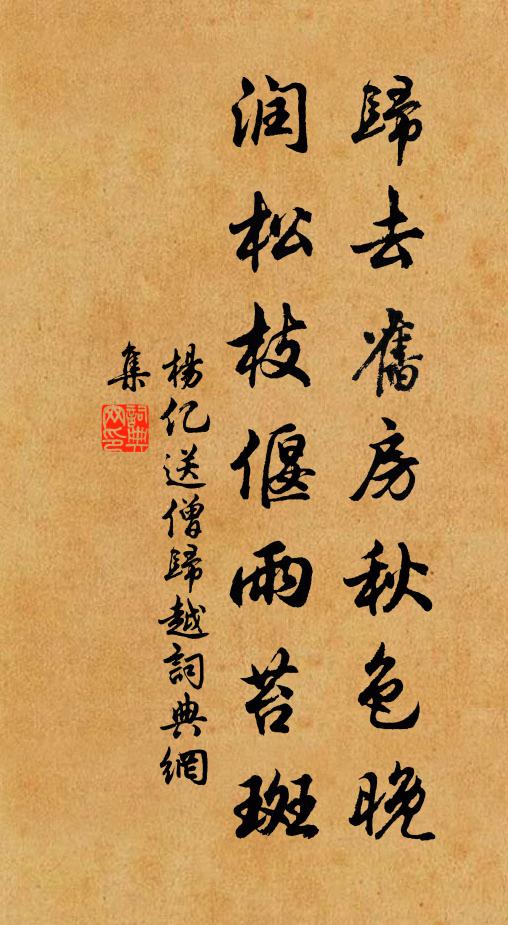 歸去舊房秋色晚
润松枝偃雨苔斑
楊亿送僧歸越詞典網
集
詞典网印